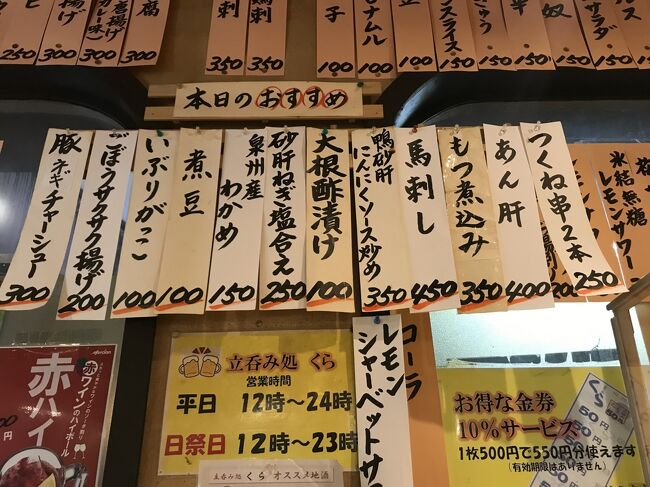 250
揚げ
350
カレー味
300
腐
300
刺
350
鶏刺
350
子
100
ナムル
100
豆
100
スライス
150
150
半
150
奴
200
サラダ
ス
本日のおすすめ
つくね串2本
250
あん肝
400
もつ煮込み
350
馬刺し
450
鴨砂肝
にんにくソース炒め
350
大根酢漬け
100
砂肝ねぎ塩合え
250
泉州産
わかめ
150
煮豆
100
いぶりがっこ
100
ごぼうサクサク揚げ
200
豚ネギチャーシュー
300
氷結無糖
レモンサワー
コーラ
レモン
シャーベットサ
立呑み処 くら
営業時間
平日 12時〜24時
日祭日 12時〜23時
立呑み処 くら オススメ地酒
お得な金券
10%サービス
1枚500円で550円分使えます
(有効期限はありません)
くら
50円
50円
Mercian
赤ワインのハイボール
赤ハイ